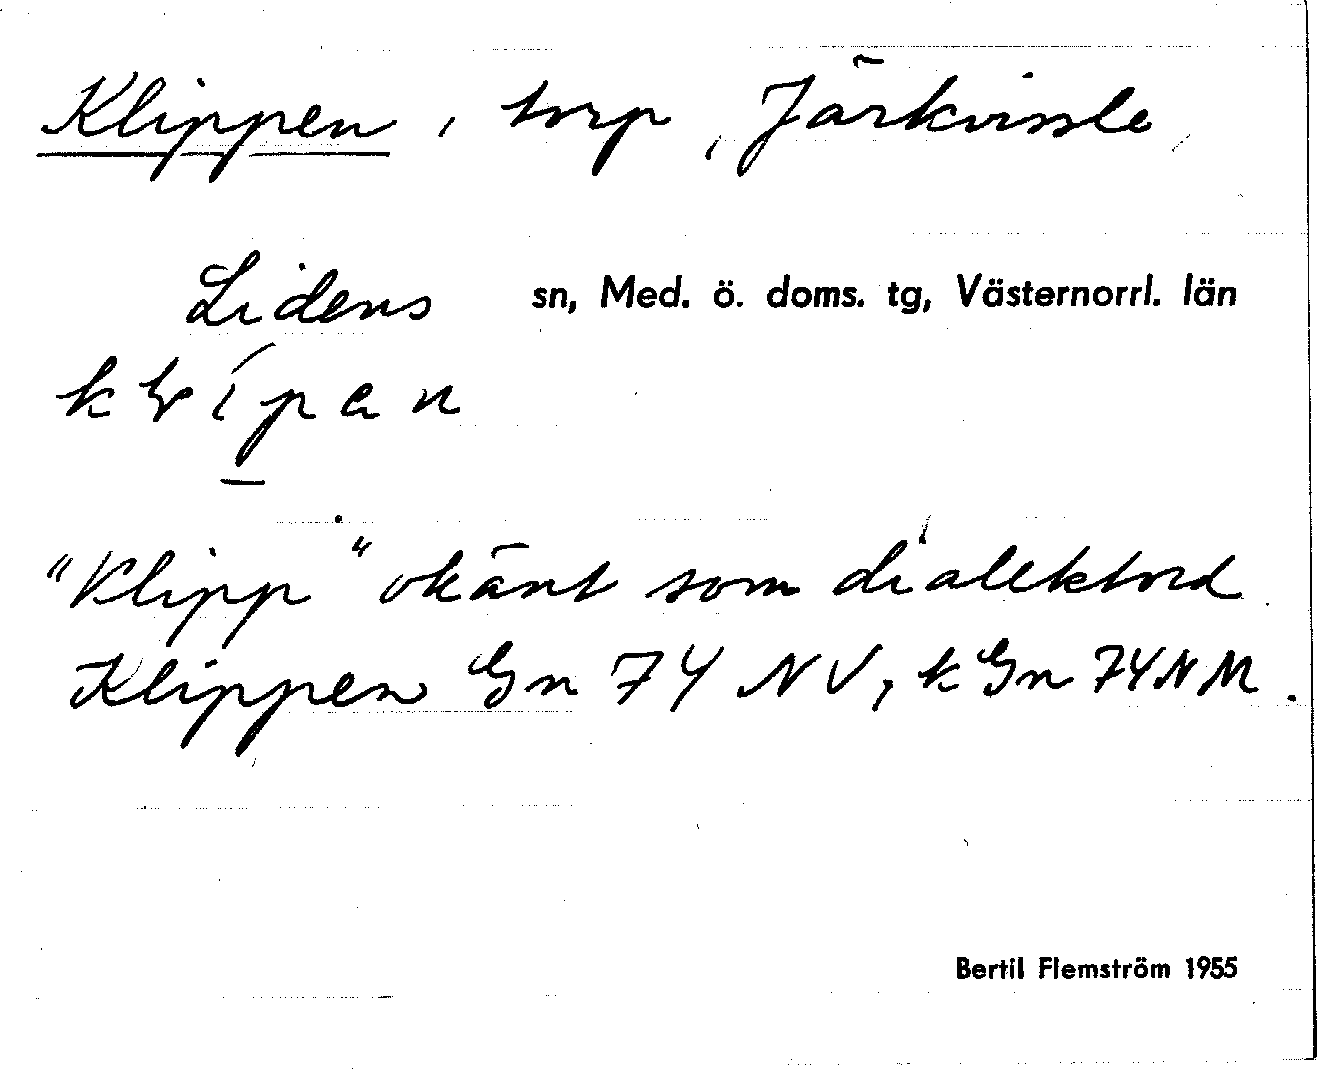 Klippen, torp, Järkvissle,
Lidens sn, Med. ö. doms. tg, Västernorrl. län
"Klipp" okänt som dialektord
Klippen Gn 74 NV, k Gn 74 NM.
Bertil Flemström 1955